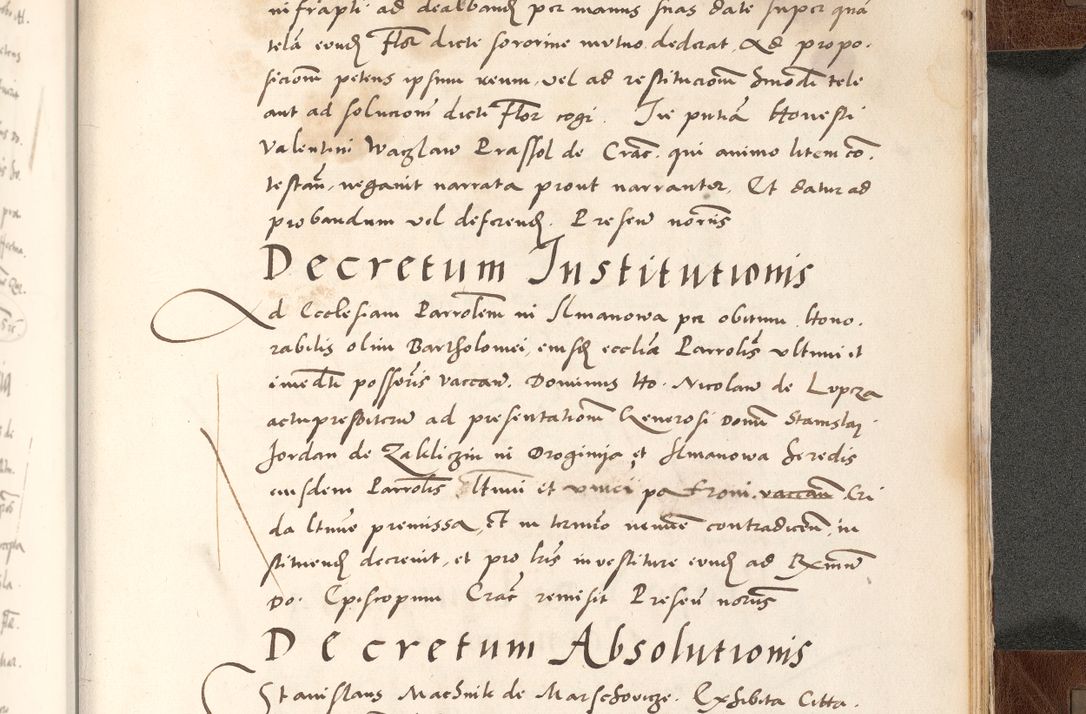 infrapti ad dealband per manus suas date super qua
tela eund Flor dicte sororine mutuo dederat, Ad propo.
sicionm petens ipsum reum, vel ad restitucionm hmodi tele
aut ad solucionm dicti Flor cogi. In pntia Honesti
Valentini Waczlaw Prassol de Crac. qui animo litem co.
testan, negavit narrata prout narrantur, Et datur ad
probandum vel deferend. Presen notriis
Decretum Institutionis
Ad Ecclesiam Parrolem in Ilmanowa per obitum Hono.
rabilis olim Bartholomei, eiusd ecclia Parrolis ultimi et
imedti possoris vaccan. Dominus Ho. Nicolaw de Lopcza
actupresbiterw ad presentationm Generosi Domi Stanislai
Jordan de Zakliczin in Droginija et Ilmanowa heredis
eiusdem Parrolis ultimi et unici patroni. vaccan Cri
da ltime premissa, Et in termino nemine contradicen, in
stituend decrevit, et pro lris investiture eund ad Rxmum
Do. Episcopum Crac remisit Presen notriis
Decretum Absolutionis
Stanislaus Machnik de Marschovicze. Exhibita Citta.